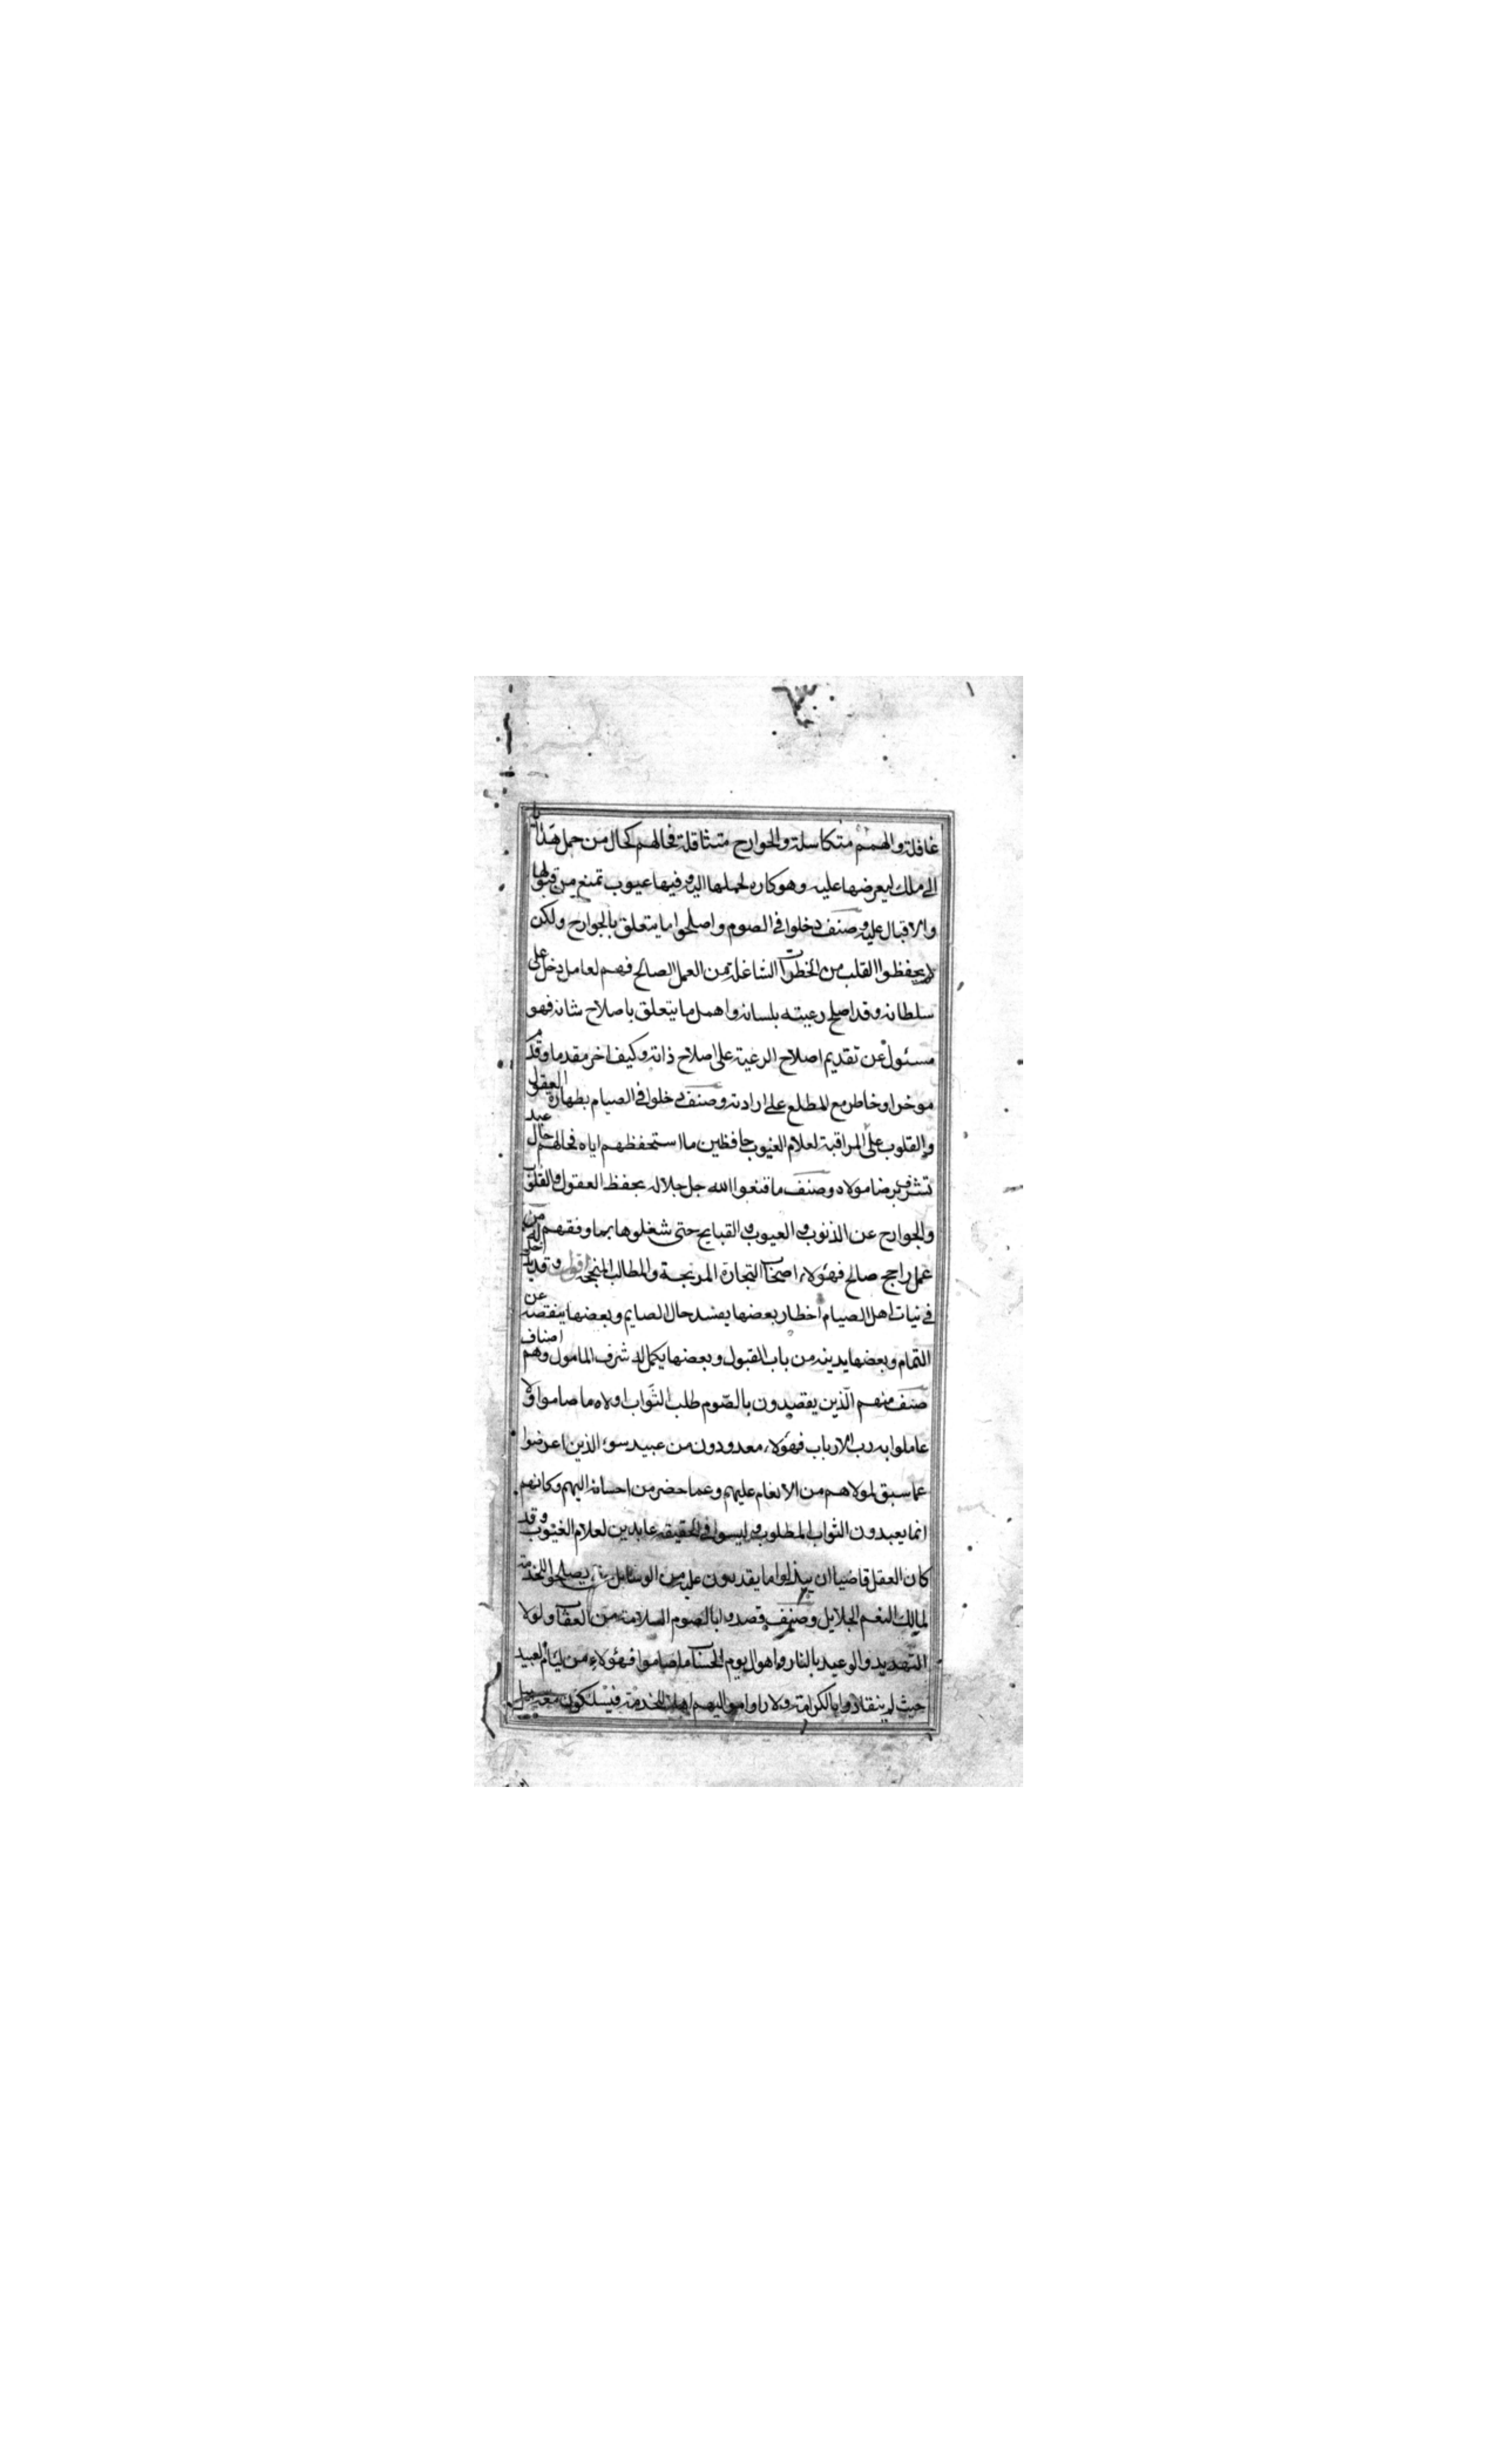 غافلة والهمم متكاسلة والجوارح متثاقلة فحالهم كحال من حمل هدايا
الى ملك ليعرضها عليه وهو كاره لحملها اليه وفيها عيوب تمنع من قبولها
والاقبال عليه وصنف دخلوا فى الصوم واصلحوا ما يتعلق بالجوارح ولكن
لم يحفظوا القلب من الخطرات الشاغلة عن العمل الصالح فهم لعامل دخل على
سلطانه وقد اصلح رعيته بلسانه واهمل ما يتعلق باصلاح شانه فهو
مسئول عن تقديم اصلاح الرعية على اصلاح ذاته وكيف اخر مقدما وقدم
موخرا وخاطر مع المطلع على ارادته وصنف دخلوا فى الصيام بطهارة العقول
والقلوب على المراقبة لعلام الغيوب حافظين ما استحفظهم اياه فحالهم حال عبد
تشرف برضا مولاه وصنف ما قنعوا الله جل جلاله بحفظ العقول والقلوب
والجوارح عن الذنوب والعيوب والقبايح حتى شغلوها بما وفقهم له من
عمل راجح صالح فهؤلاء اصحاب التجارة المربحة والمطالب المنجحة اقول وقد يدخل
فى نيات اهل الصيام اخطار بعضها يفسد حال الصايم وبعضها ينقصه عن
التمام وبعضها يدنيه من باب القبول وبعضها يكمل له شرف المامول وهم اصناف
صنف منهم الذين يقصدون بالصوم طلب الثواب ولولاه ما صاموا ولا
عاملوا به رب الارباب فهؤلاء معدودون من عبيد سوء الذين اعرضوا
عما سبق لمولاهم من الانعام عليهم وعما حضر من احسانه اليهم وكانهم
انما يعبدون الثواب المطلوب وليسوا فى الحقيقة عابدين لعلام الغيوب وقد
كان العقل قاضيا ان يبذلوا ما يقدرون عليه من الوسائل حتى يصلحوا للخدمة
لمالك النعم الجلايل وصنف قصدوا بالصوم السلامة من العقاب ولولا
التهديد والوعيد بالنار واهوال يوم الحساب ما صاموا فهؤلاء من لئام العبيد
حيث لم ينقادوا بالكرامة ولا راوا مواليهم اهلا للخدمة فيسلكون معه سبيل